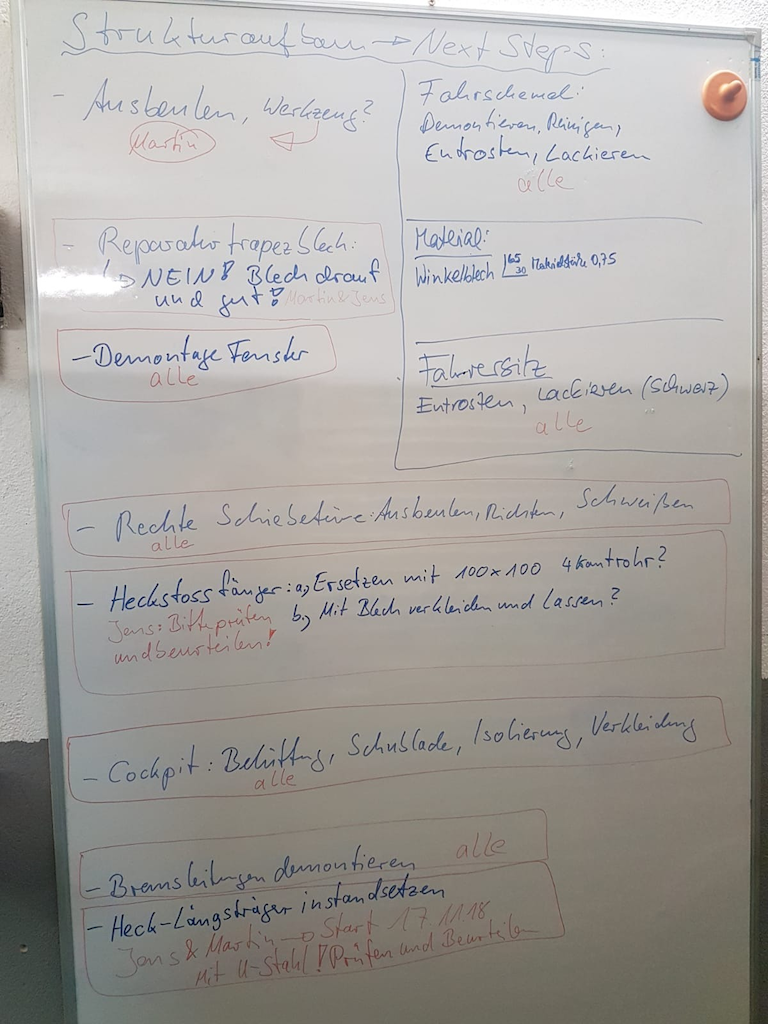 Strukturaufbau → Next Steps:
- Ausbeulen, Werkzeug?
Martin
- Reparatur trapezblech:
↳ NEIN! Blech drauf
und gut! Martin & Jens
- Demontage Fenster
alle
Fahrschemel:
Demontieren, Reinigen,
Entrosten, Lackieren
alle
Material:
Winkelblech 65 30 Materialstärke 0,75
Fahrersitz
Entrosten, Lackieren (Schwarz)
alle
- Rechte Schiebetüre: Ausbeulen, Richten, Schweißen
alle
- Heckstossfänger: a, Ersetzen mit 100x100 4kantrohr?
b, Mit Blech verkleiden und Lassen?
Jens: Bitte prüfen
und beurteilen!
- Cockpit: Belüftung, Schublade, Isolierung, Verkleidung
alle
- Bremsleitungen demontieren alle
- Heck-Längsträger instandsetzen
Jens & Martin → Start 17.11.18
Mit U-Stahl! Prüfen und Beurteilen